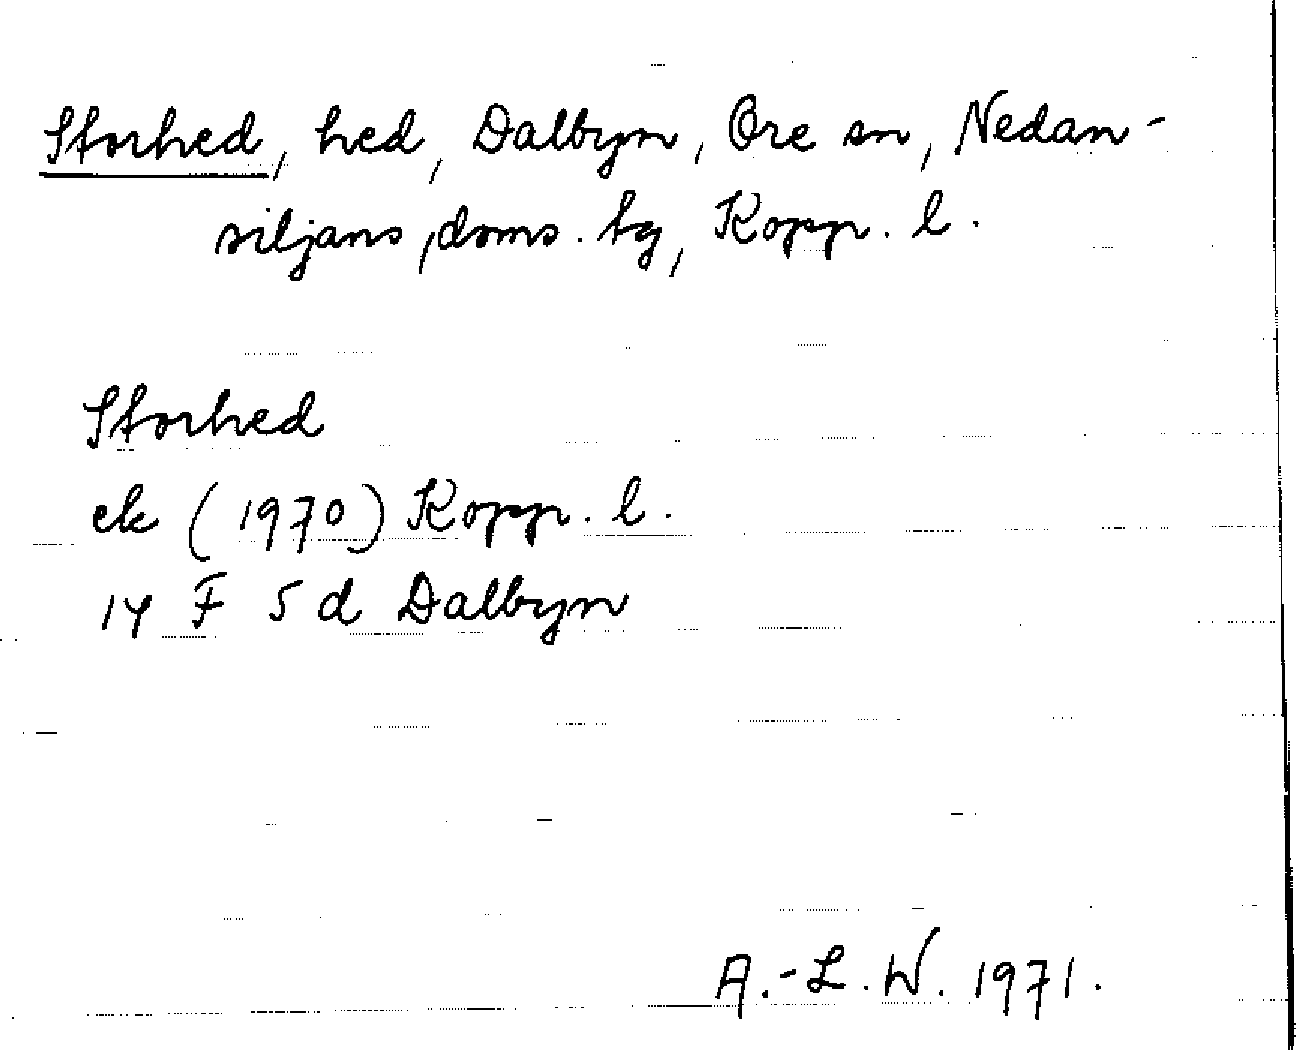 Storhed, hed, Dalbyn, Ore sn, Nedan-
siljans, doms. tg, Kopp. l.
Storhed
ek (1970) Kopp. l.
14 F 5 d Dalbyn
A.-L. W. 1971.